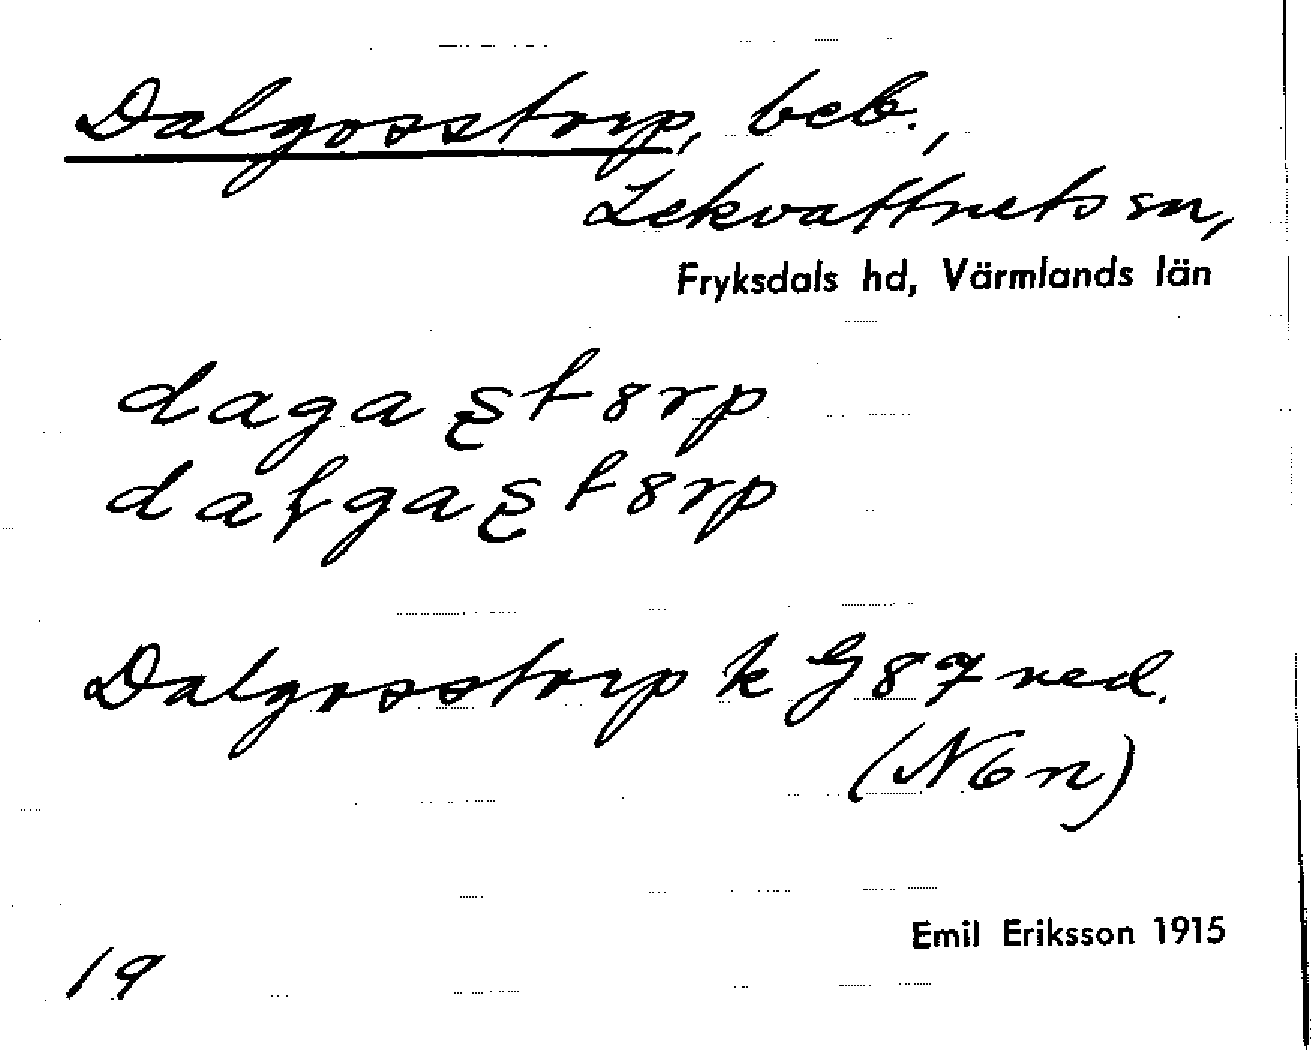 Dalgosstorp, beb.,
Lekvattnets sn,
Fryksdals hd, Värmlands län
dagaʂtȣrp
daɫgaʂtȣrp
Dalgosstorp k G 87 ned.
(N6n)
Emil Eriksson 1915
19